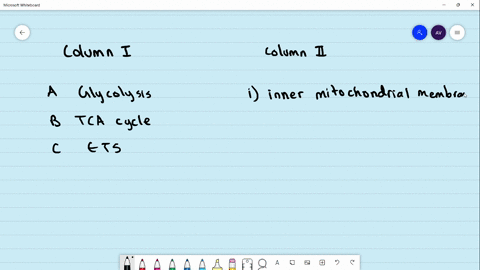 Microsoft Whiteboard
AV
Column I
Column II
A Glycolysis
i) inner mitochondrial membra
B TCA cycle
C ETS